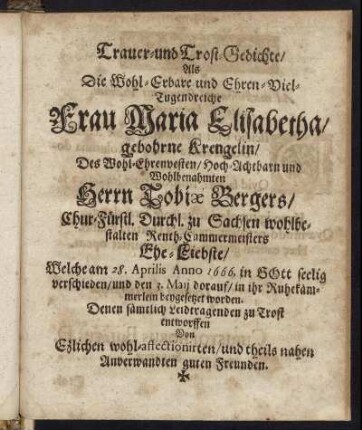 Trauer-und Trost-Gedichte/
Als
Die Wohl-Erbare und Ehren-Viel-
Tugendreiche
Frau Maria Elisabetha/
gebohrne Krengelin/
Des Wohl-Ehrenvesten/ Hoch-Achtbarn und
Wohlbenahmten
Herrn Tobiæ Bergers/
Chur-Fürstl. Durchl. zu Sachsen wohlbe-
stalten Renth-Cammermeisters
Ehe-Liebste/
Welche am 28. Aprilis Anno 1666. in GOtt seelig
verschieden/ und den 3. Maij darauf/ in ihr Ruhekäm-
merlein beygesetzet worden.
Denen sämtlich Leidtragenden zu Trost
entworffen
Von
Etzlichen wohl-affectionirten/ und theils nahen
Anverwandten guten Freunden.